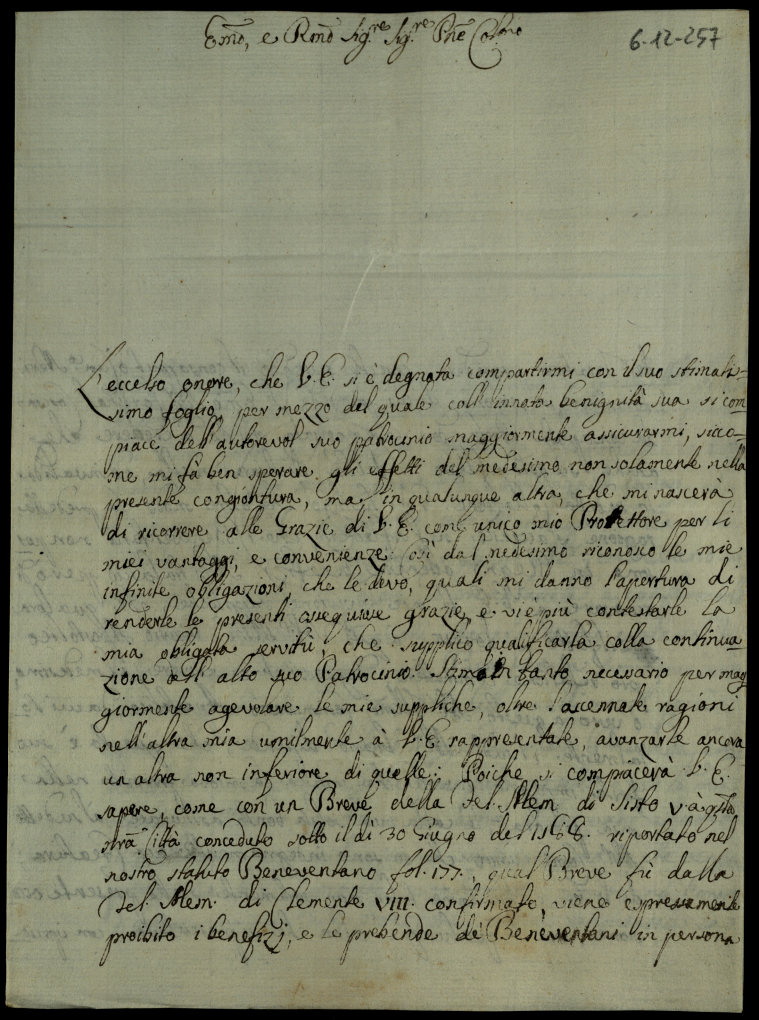 Emo, e Rmo Sig.re Sig.re Pne Colmo
6-12-257
L'eccelso onore, che V. E. si è degnata compartirmi con il suo stimatis-
simo foglio, per mezzo del quale coll'innata benignità sua si com-
piace dell'autorevol suo patrocinio maggiormente assicurarmi, sicco-
me mi fà ben sperare gli effetti del medesimo non solamente nella
presente congiontura, ma in qualunque altra, che mi nascerà
di ricorrere alle Grazie di V. E. come unico mio Protettore per li
miei vantaggi, e convenienze: così dal medesimo riconosco le mie
infinite obligazioni, che le devo, quali mi danno l'apertura di
renderle le presenti ossequiose grazie, e vi è più contestarle la
mia obligata servitù; che supplico qualificarla colla continua-
zione dell'alto suo Patrocinio. Stimo in tanto necessario per mag-
giormente agevolare le mie suppliche, oltre l'accennate ragioni
nell'altra mia umilmente à V. E. rappresentate, avanzarle ancora
un altra non inferiore di quelle; Poiche si compiacerà V. E.
sapere, come con un Breve della fel. Mem. di Sisto V. à qsta
nrã Città conceduto sotto il di 30 Giugno del 1588. riportato nel
nostro statuto Beneventano fol. 177., qual Breve fù dalla
fel. Mem. di Clemente VIII. confirmato, viene espressamente
proibito i benefizj, e le prebende de' Beneventani in persona